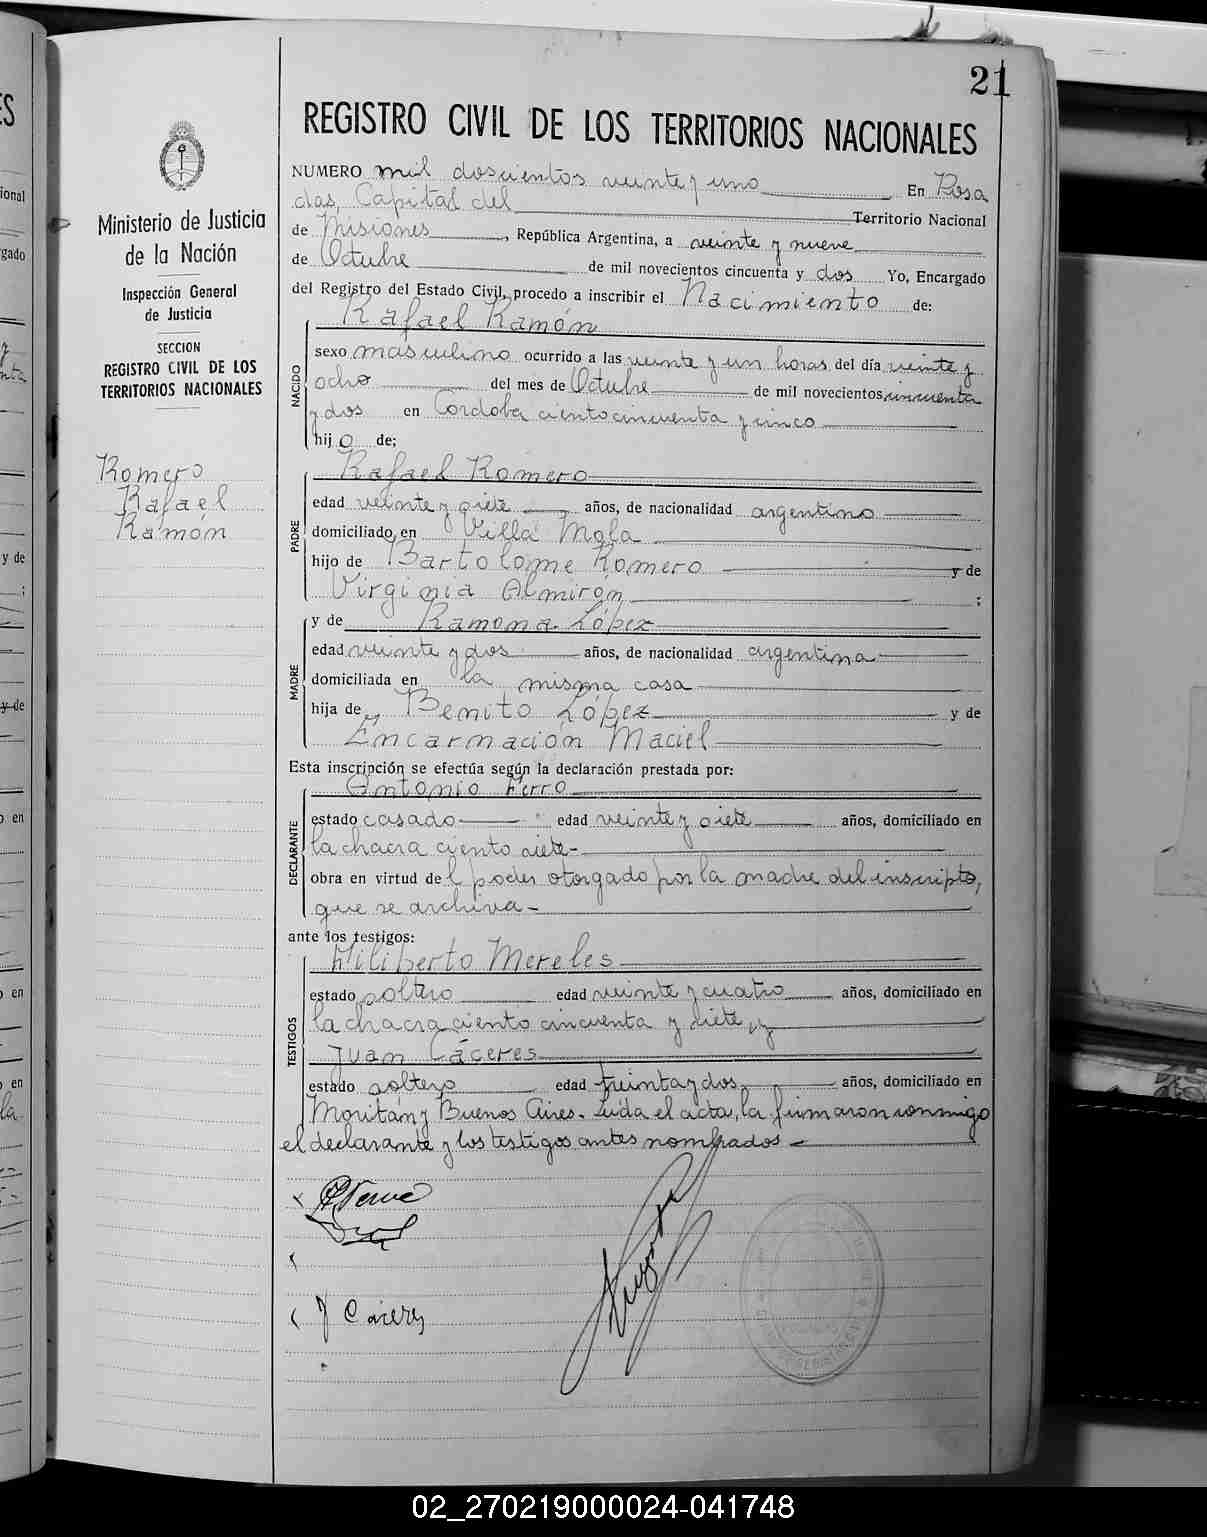 21
REGISTRO CIVIL DE LOS TERRITORIOS NACIONALES
Ministerio de Justicia
de la Nación
Inspección General
de Justicia
SECCION
REGISTRO CIVIL DE LOS
TERRITORIOS NACIONALES
Romero
Rafael
Ramón
NUMERO mil doscientos veinte y uno En Posa
das, Capital del Territorio Nacional
de Misiones, República Argentina, a veinte y nueve
de Octubre de mil novecientos cincuenta y dos Yo, Encargado
del Registro del Estado Civil, procedo a inscribir el Nacimiento de:
Rafael Ramón
NACIDO
sexo masculino ocurrido a las veinte y un horas del día veinte y
ocho del mes de Octubre de mil novecientos cincuenta
y dos en Cordoba ciento cincuenta y cinco
hijo de;
Rafael Romero
PADRE
edad veinte y siete años, de nacionalidad argentino
domiciliado en Villa Mola
hijo de Bartolome Romero y de
Virginia Almirón ;
y de Ramona López
MADRE
edad veinte y dos años, de nacionalidad argentina
domiciliada en la misma casa
hija de Benito López y de
Encarnación Maciel
Esta inscripción se efectúa según la declaración prestada por:
Antonio Ferro
DECLARANTE
estado casado edad veinte y siete años, domiciliado en
la chacra ciento siete-
obra en virtud del poder otorgado por la madre del inscripto,
que se archiva-
ante los testigos:
Hiliberto Mereles
TESTIGOS
estado soltero edad veinte y cuatro años, domiciliado en
la chacra ciento cincuenta y siete, y
Juan Cáceres
estado soltero edad treinta y dos años, domiciliado en
Moritán y Buenos Aires. Leída el acta, la firmaron conmigo
el declarante y los testigos antes nombrados-
J Caceres
02_270219000024-041748